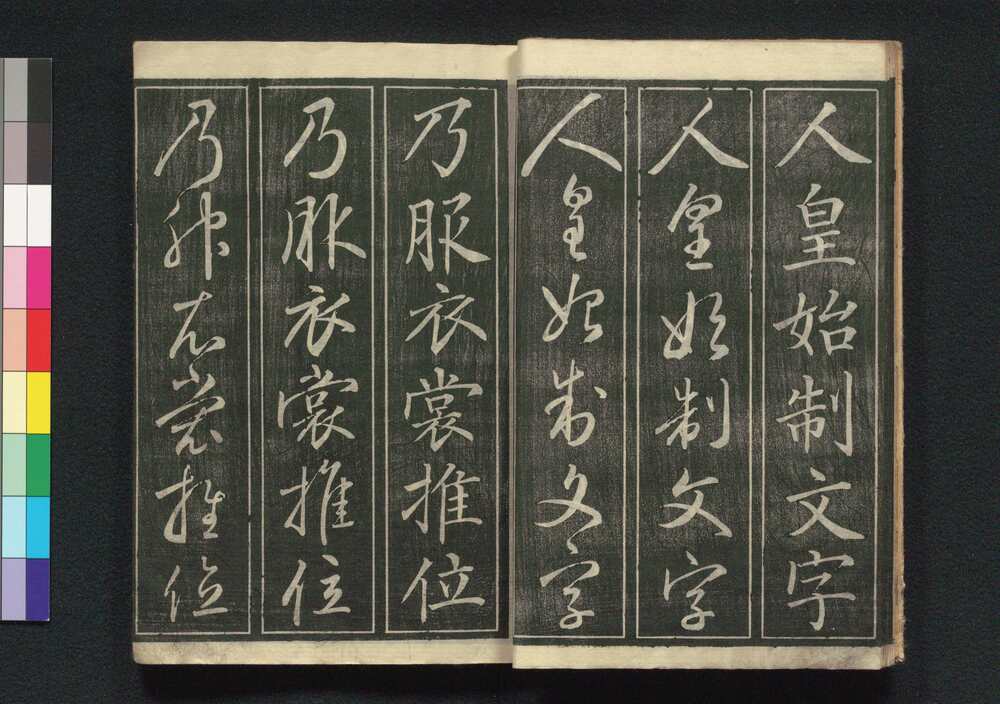 人皇始制文字
人皇始制文字
人皇始制文字
乃服衣裳推位
乃服衣裳推位
乃服衣裳推位